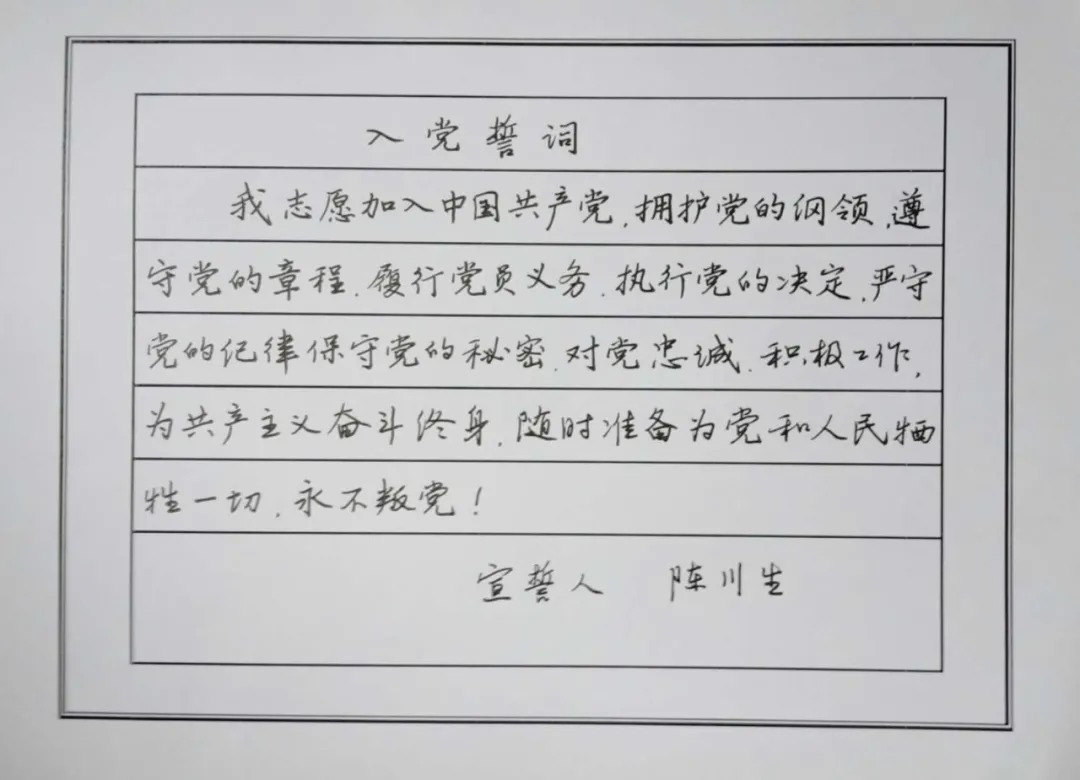 入党誓词
我志愿加入中国共产党,拥护党的纲领,遵
守党的章程,履行党员义务,执行党的决定,严守
党的纪律保守党的秘密,对党忠诚,积极工作,
为共产主义奋斗终身,随时准备为党和人民牺
牲一切,永不叛党!
宣誓人 陈川生